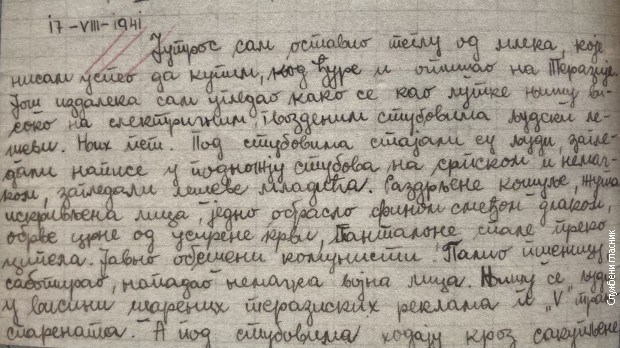 17-VIII-1941
Јутрос сам оставио теглу од млека, које
нисам успео да купим, код Ђуре и отишао на Теразије.
Још издалека сам угледао како се као лутке њишу ви-
соко на електричним гвозденим стубовима људски ле-
шеви. Њих пет. Под стубовима стајали су људи, загле-
дали натписе у подножју стубова на српском и немач-
ком, загледали лешеве младића. Раздрљене кошуље, жута
искривљена лица, једно обрасло фином смеђом длаком,
обрве црне од усирене крви, Панталоне спале преко
ципела. Јавно обешени комунисти. Палио пшеницу,
саботирао, нападао немачка војна лица. Њишу се људи
у висини шарених теразиских реклама и „V" тран-
спарената. А под стубовима ходају кроз сакупљене
Службени гласник